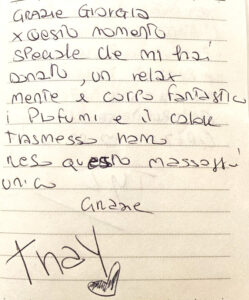 GRAZIE GIORGIA
x QUESTO MOMENTO
SPECIALE CHE MI HAI
DONATO, UN RELAX
MENTE E CORPO FANTASTICO
I PROFUMI E IL CALORE
TRASMESSO HANNO
RESO QUESTO MASSAGGIO
UNICO
GRAZIE